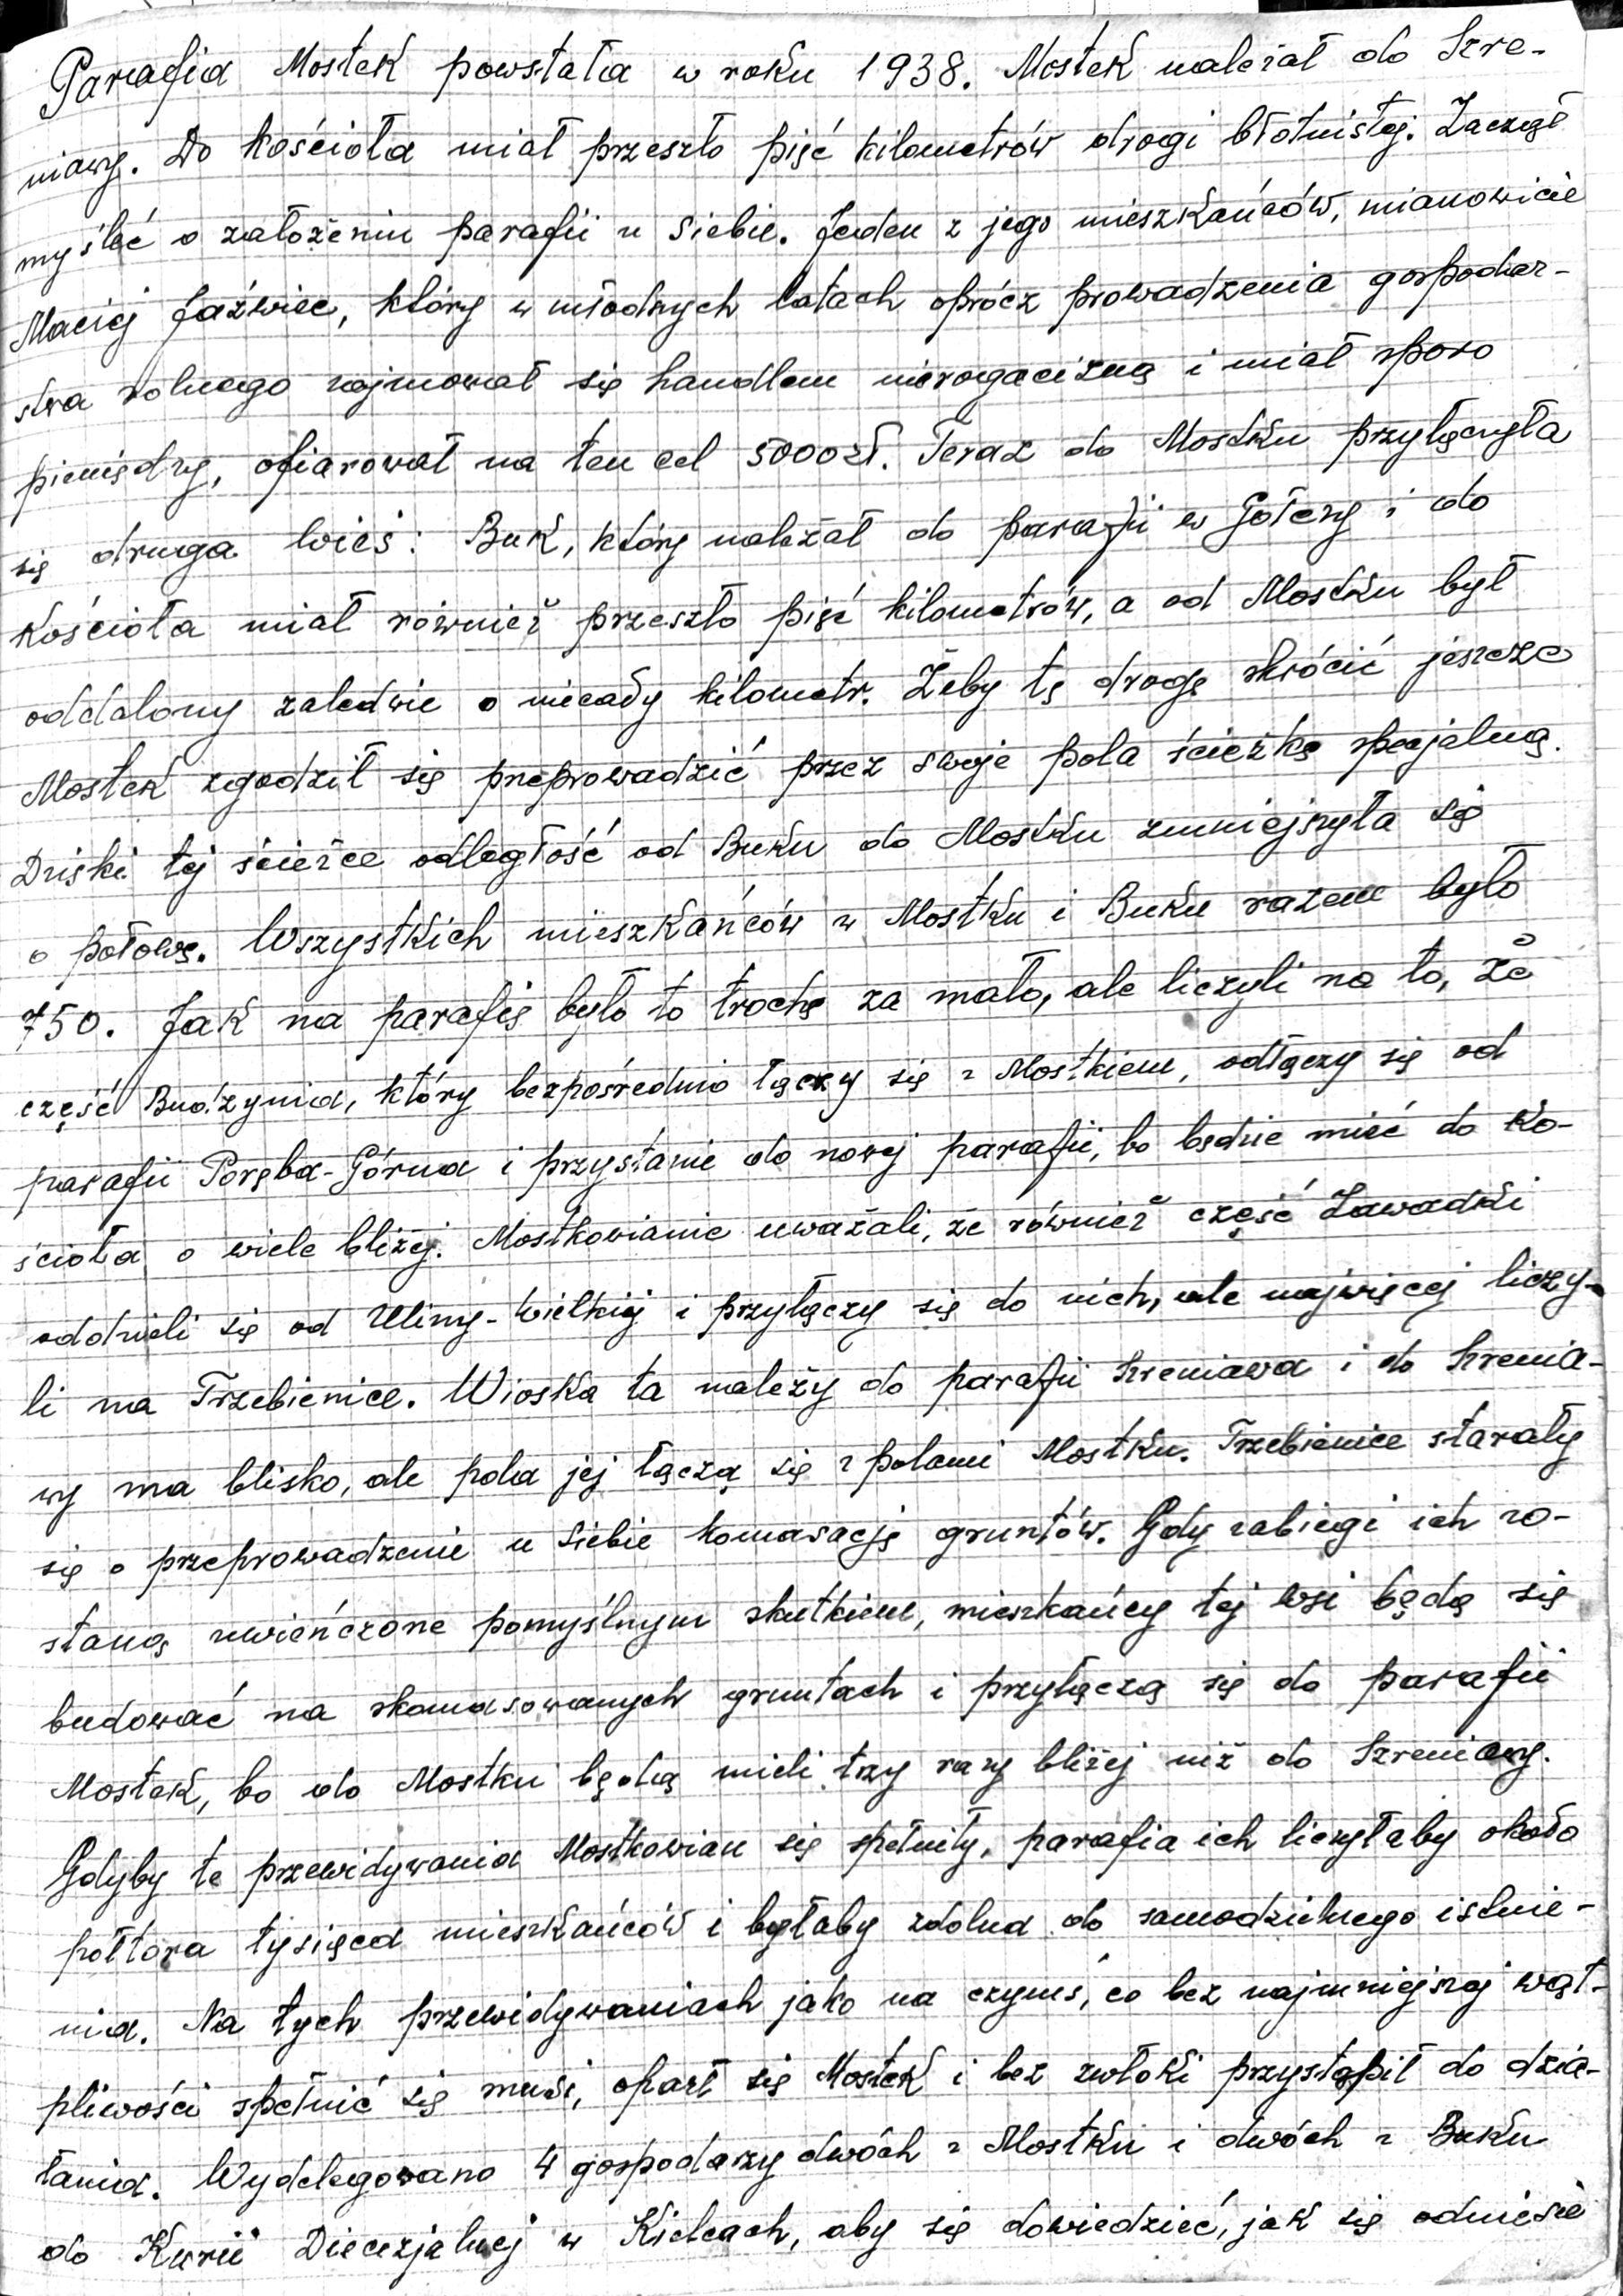 Parafia Mostek powstała w roku 1938. Mostek należał do Szre-
niawy. Do kościoła miał przeszło pięć kilometrów drogi błotnistej. Zaczął
myśleć o założeniu parafii u siebie. Jeden z jego mieszkańców, mianowicie
Maciej Jaźwiec, który w młodych latach oprócz prowadzenia gospodar-
stwa rolnego zajmował się handlem nierogacizną i miał sporo
pieniędzy, ofiarował na ten cel 5000 zł. Teraz do Mostku przyłączyła
się druga wieś: Buk, który należał do parafii w Gołczy i do
kościoła miał również przeszło pięć kilometrów, a od Mostku był
oddalony zaledwie o niecały kilometr. Żeby tę drogę skrócić jeszcze
Mostek zgodził się przeprowadzić przez swoje pola ścieżkę specjalną.
Dzięki tej ścieżce odległość od Buku do Mostku zmniejszyła się
o połowę. Wszystkich mieszkańców z Mostku i Buku razem było
750. Jak na parafię było to trochę za mało, ale liczyli na to, że
część Budzynia, który bezpośrednio łączy się z Mostkiem, odłączy się od
parafii Poręba-Górna i przystanie do nowej parafii, bo będzie mieć do ko-
ścioła o wiele bliżej. Mostkowianie uważali, że również część Zawadki
oddzieli się od Uliny-Wielkiej i przyłączy się do nich, ale najwięcej liczy-
li na Trzebienice. Wioska ta należy do parafii Szreniawa i do Szrenia-
wy ma blisko, ale pola jej łączą się z polami Mostku. Trzebienice starały
się o przeprowadzenie u siebie komasację gruntów. Gdy zabiegi ich zo-
staną uwieńczone pomyślnym skutkiem, mieszkańcy tej wsi będą się
budować na skomasowanych gruntach i przyłączą się do parafii
Mostek, bo do Mostku będą mieli trzy razy bliżej niż do Szreniawy.
Gdyby te przewidywania Mostkowian się spełniły, parafia ich liczyłaby około
półtora tysiąca mieszkańców i byłaby zdolna do samodzielnego istnie-
nia. Na tych przewidywaniach jako na czymś, co bez najmniejszej wąt-
pliwości spełnić się musi, oparł się Mostek i bez zwłoki przystąpił do dzia-
łania. Wydelegowano 4 gospodarzy dwóch z Mostku i dwóch z Buku
do Kurii Diecezjalnej w Kielcach, aby się dowiedzieć, jak się odniesie